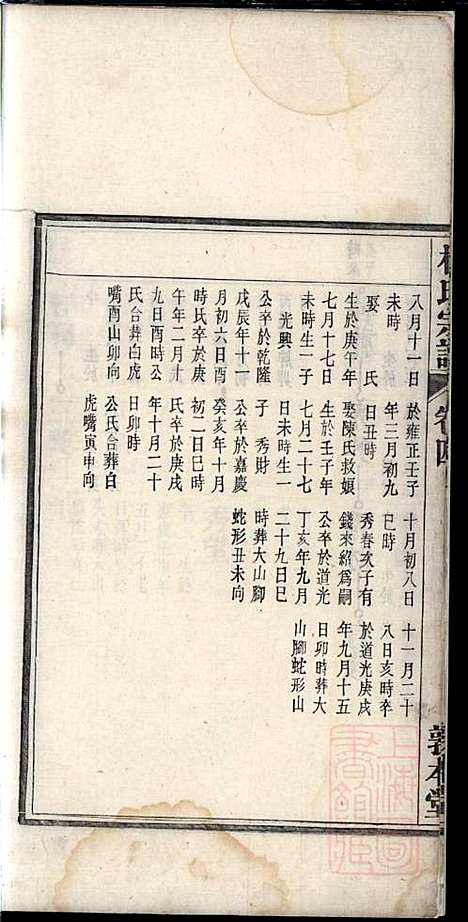 八月十一日
未時
娶　氏
生於庚午年
七月十七日
未時生一子
光興
公卒於乾隆
戊辰年十一
月初六日酉
時氏卒於庚
午年二月廿
九日酉時公
氏合葬白虎
嘴酉山卯向
於雍正壬子
年三月初九
日丑時
娶陳氏救娘
生於壬子年
七月二十七
日未時生一
子　秀財
公卒於嘉慶
癸亥年十月
初二日巳時
氏卒於庚戌
年十月二十
日卯時
公氏合葬白
虎嘴寅申向
十月初八日
巳時
秀春次子有
錢來紹為嗣
公卒於道光
丁亥年九月
二十九日巳
時葬大山腳
蛇形丑未向
十一月二十
八日亥時卒
於道光庚戌
年九月十五
日卯時葬大
山腳蛇形山
氏宗譜
卷四
敦本堂
上海圖書館藏